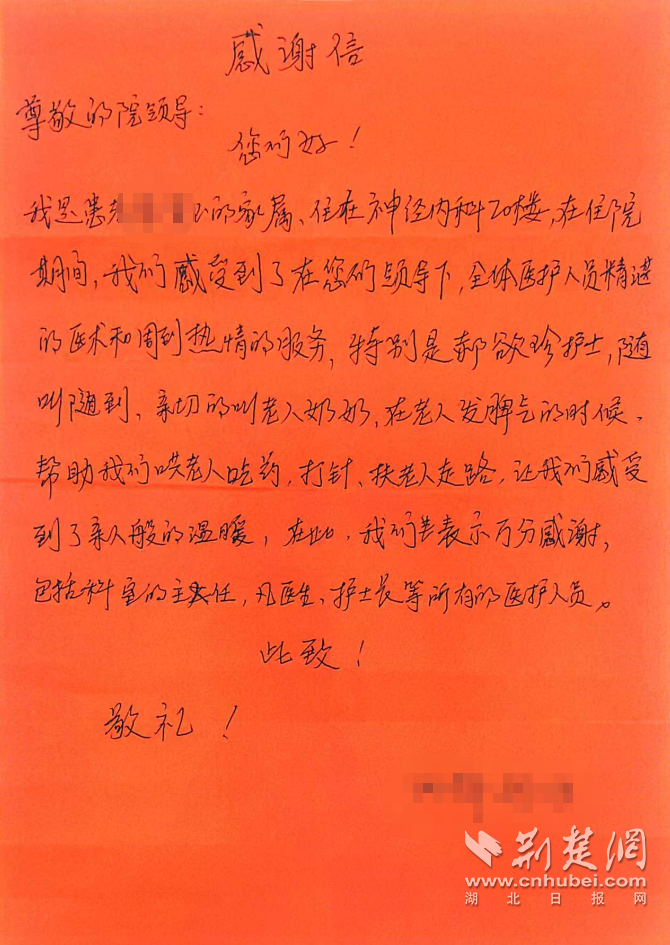 感谢信
尊敬的院领导：
您们好！
我是患者的家属、住在神经内科20楼，在住院
期间，我们感受到了在您们领导下，全体医护人员精湛
的医术和周到热情的服务，特别是郝欲珍护士，随
叫随到、亲切的叫老人奶奶，在老人发脾气的时候、
帮助我们哄老人吃药，打针、扶老人走路，让我们感受
到了亲人般的温暖，在此，我们表示万分感谢，
包括科室的主任，医生、护士长等所有的医护人员。
此致！
敬礼！
荆楚网
www.cnhubei.com
湖北日报网